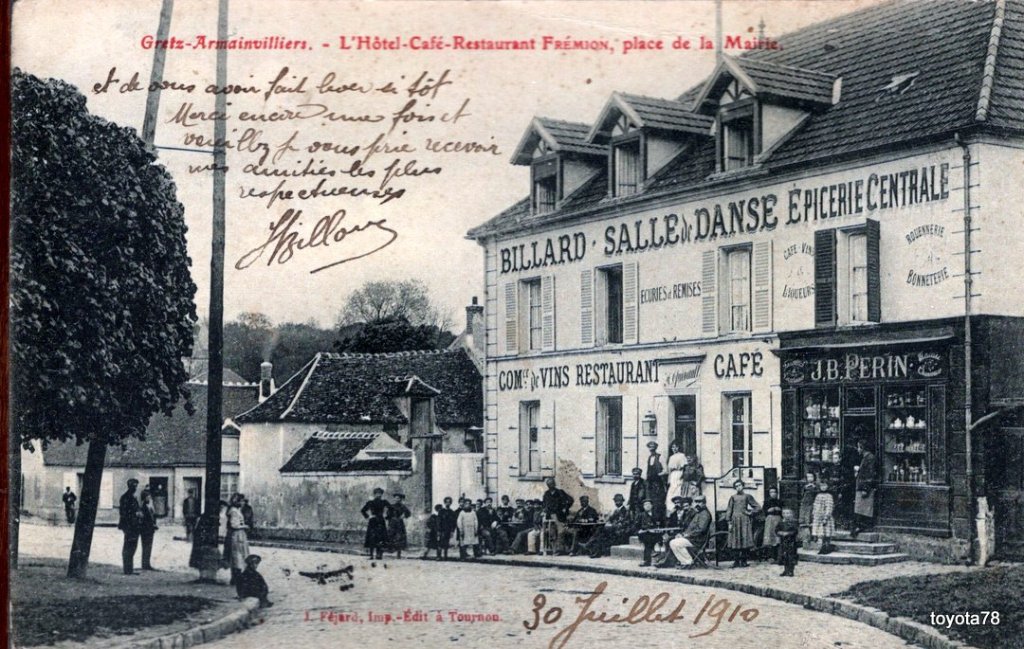 Gretz-Armainvilliers. - L'Hôtel-Café-Restaurant FRÉMION, place de la Mairie.
et de vous avoir fait lever si tôt
Merci encore une fois et
veuillez je vous prie recevoir
mes amitiés les plus
respectueuses
HBillon
BILLARD - SALLE de DANSE ÉPICERIE CENTRALE
ÉCURIES & REMISES
CAFÉ VINS
&
LIQUEURS
ROUENNERIE
&
BONNETERIE
COMce DE VINS RESTAURANT
CAFÉ
J.B. PERIN
30 Juillet 1910
J. Féjard, Imp.-Édit à Tournon.
toyota78